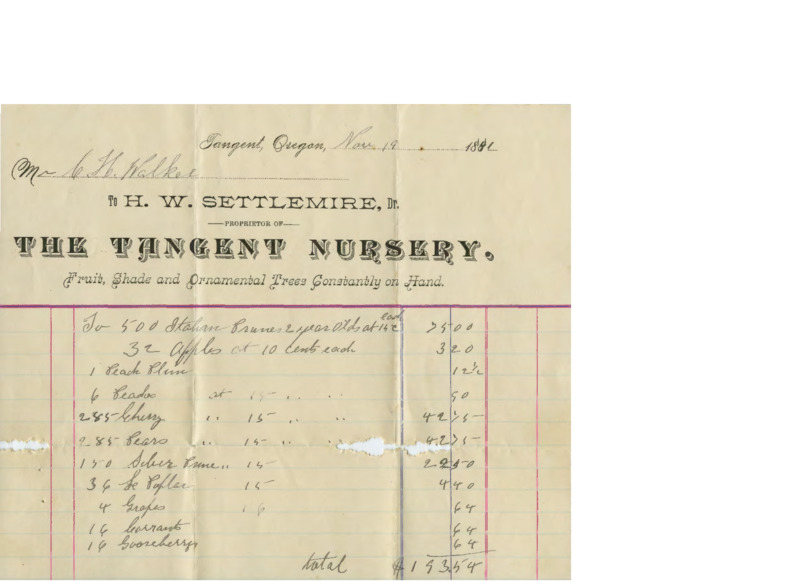 Tangent, Oregon, Nov. 19 1891
Mr C H. Walker
To H. W. SETTLEMIRE, Dr.
PROPRIETOR OF
THE TANGENT NURSERY.
Fruit, Shade and Ornamental Trees Constantly on Hand.
To 500 Italian Prunes 2 year Olds at 15 c each 7500
32 Apples at 10 cents each 3 20
1 Peach Plum 12½
6 Peaches at 15 " " 90
285 Cherry " 15 " " 42 75
285 Pears " 15 " " 42 75
150 Silver Prune " 15 22 50
36 Poplar 15 4 40
4 Grapes 16 64
16 Currants 64
16 Gooseberrys 64
total $193.54